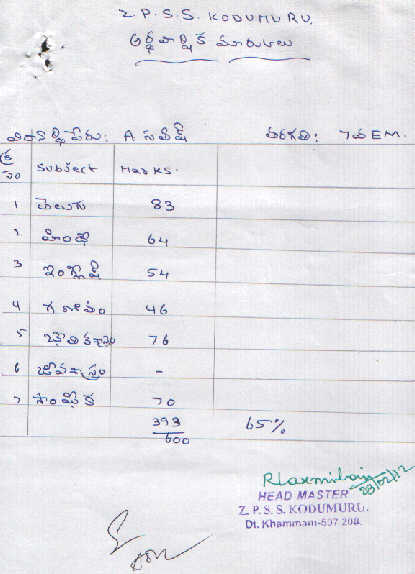 Z.P.S.S. KODUMURU.
అర్థవార్షిక మార్కులు
విద్యార్థిపేరు: A సతీష్ తరగతి: 7వ EM.
క్ర సం Subject Marks.
1 తెలుగు 83
2 హిందీ 64
3 ఇంగ్లీష్ 54
4 గణితం 46
5 భౌతికశాస్త్రం 76
6 జీవశాస్త్రం -
7 సాంఘిక 70
393/600 65%
RLaxmibai
28/02/12
HEAD MASTER
Z.P.S.S. KODUMURU.
Dt. Khammam-507 208.